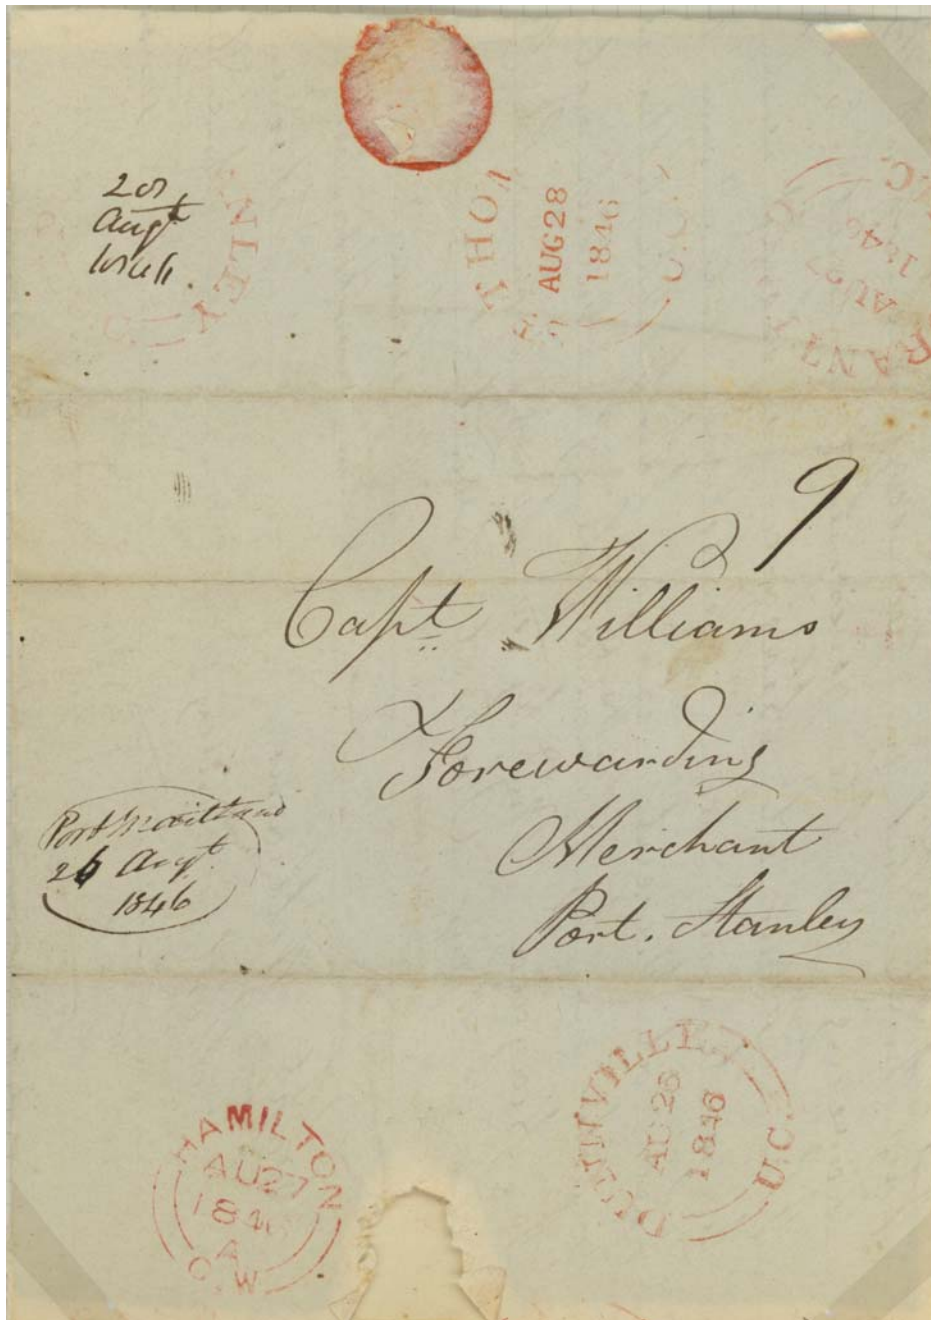 Augt
NLEY
THO
AUG 28
1846
U.C.
AU 27
1846
RANT
9
Capt. Williams
Forewarding
Merchant
Port. Stanley
Port Maitland
26 Augt
1846
HAMILTON
AU 27
184
A
C.W
DUNNVILLE
AU 26
1846
U.C.